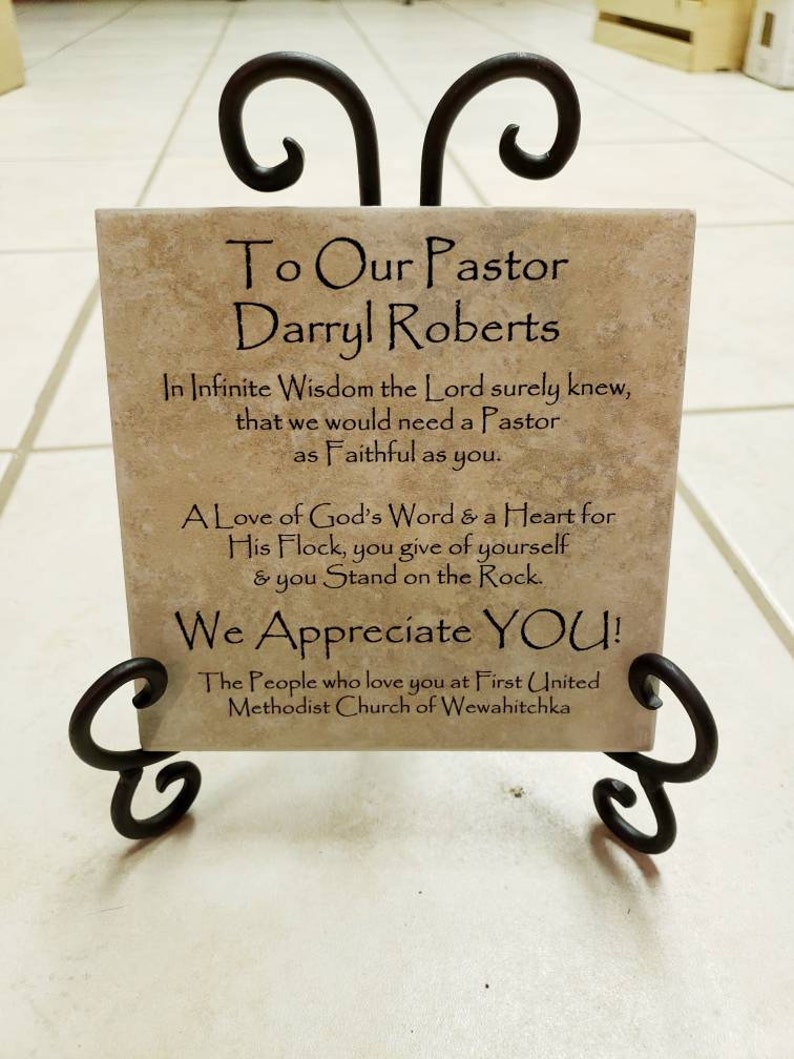 To Our Pastor
Darryl Roberts
In Infinite Wisdom the Lord surely knew,
that we would need a Pastor
as Faithful as you.
A Love of God's Word & a Heart for
His Flock, you give of yourself
& you Stand on the Rock.
We Appreciate YOU!
The People who love you at First United
Methodist Church of Wewahitchka